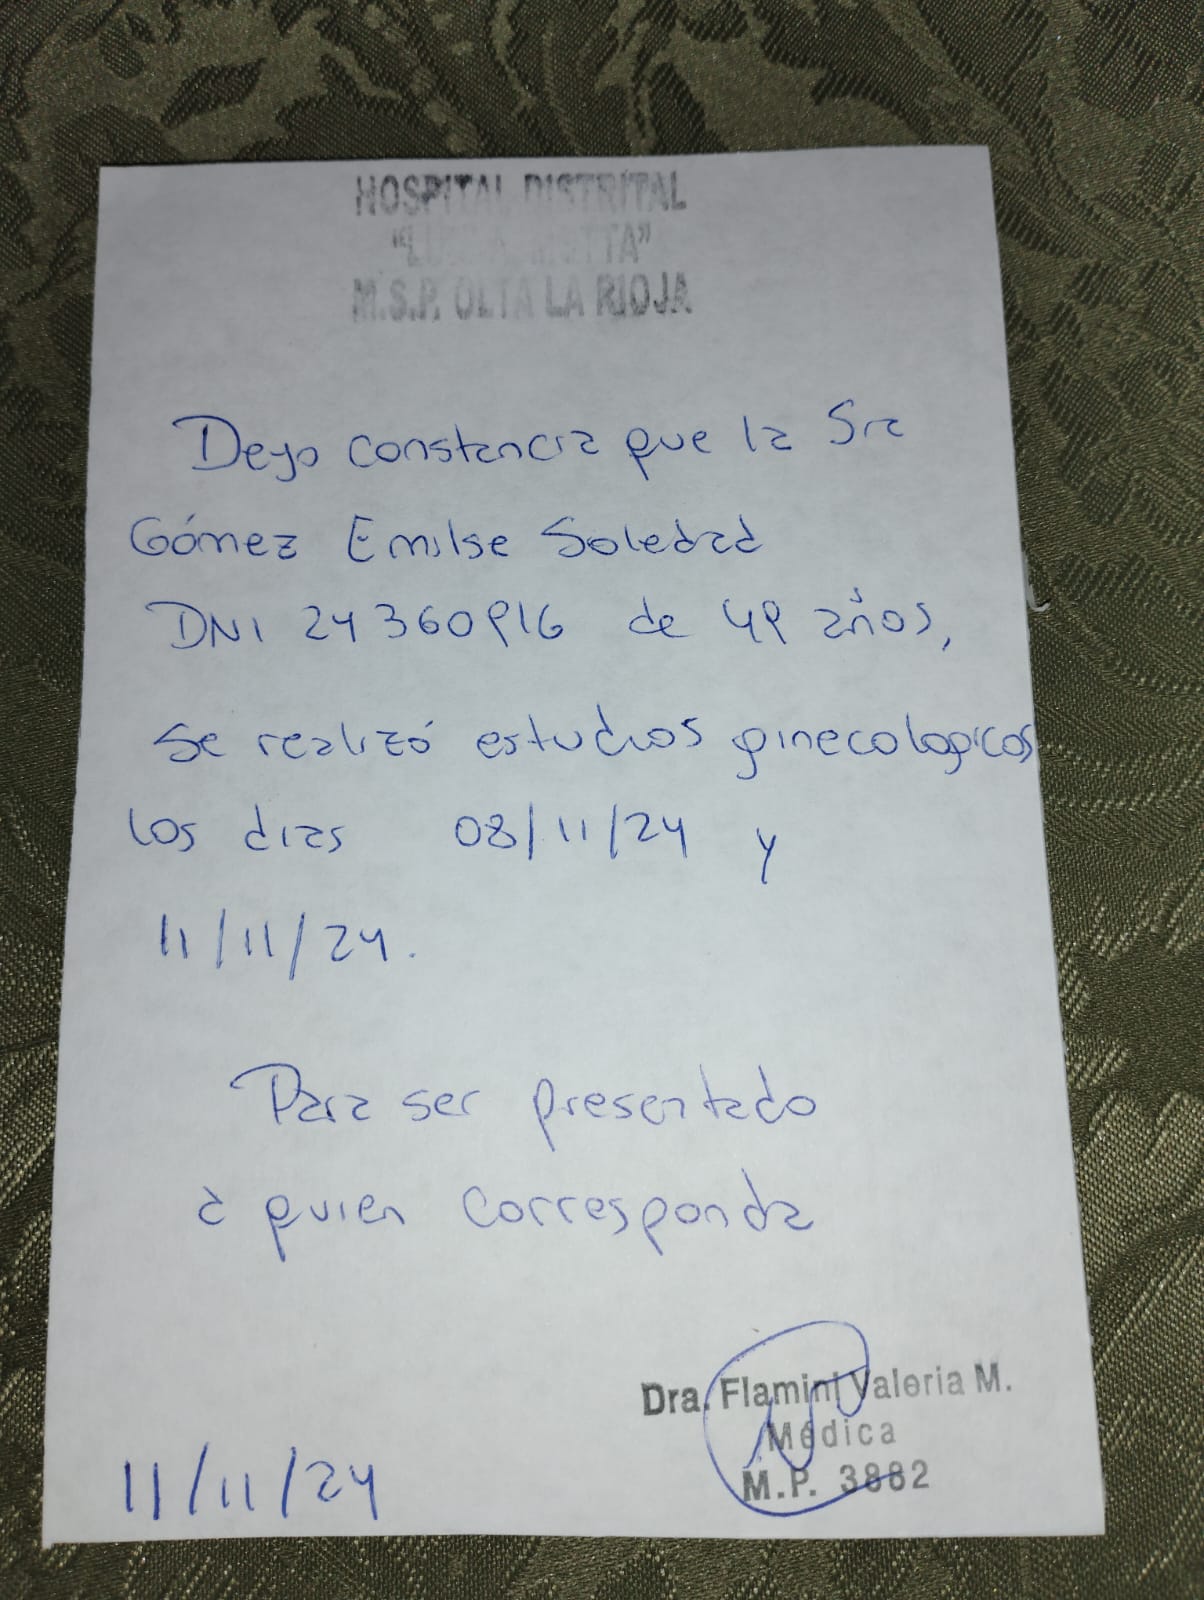 HOSPITAL DISTRITAL
M.S.P. OLTA LA RIOJA
Dejo constancia que la Sra
Gómez Emilse Soledad
DNI 24360916 de 49 años,
se realizó estudios ginecologicos
los dias 08/11/24 y
11/11/24.
Para ser presentado
a quien corresponda
Dra. Flamini Valeria M.
Médica
M.P. 3882
11/11/24